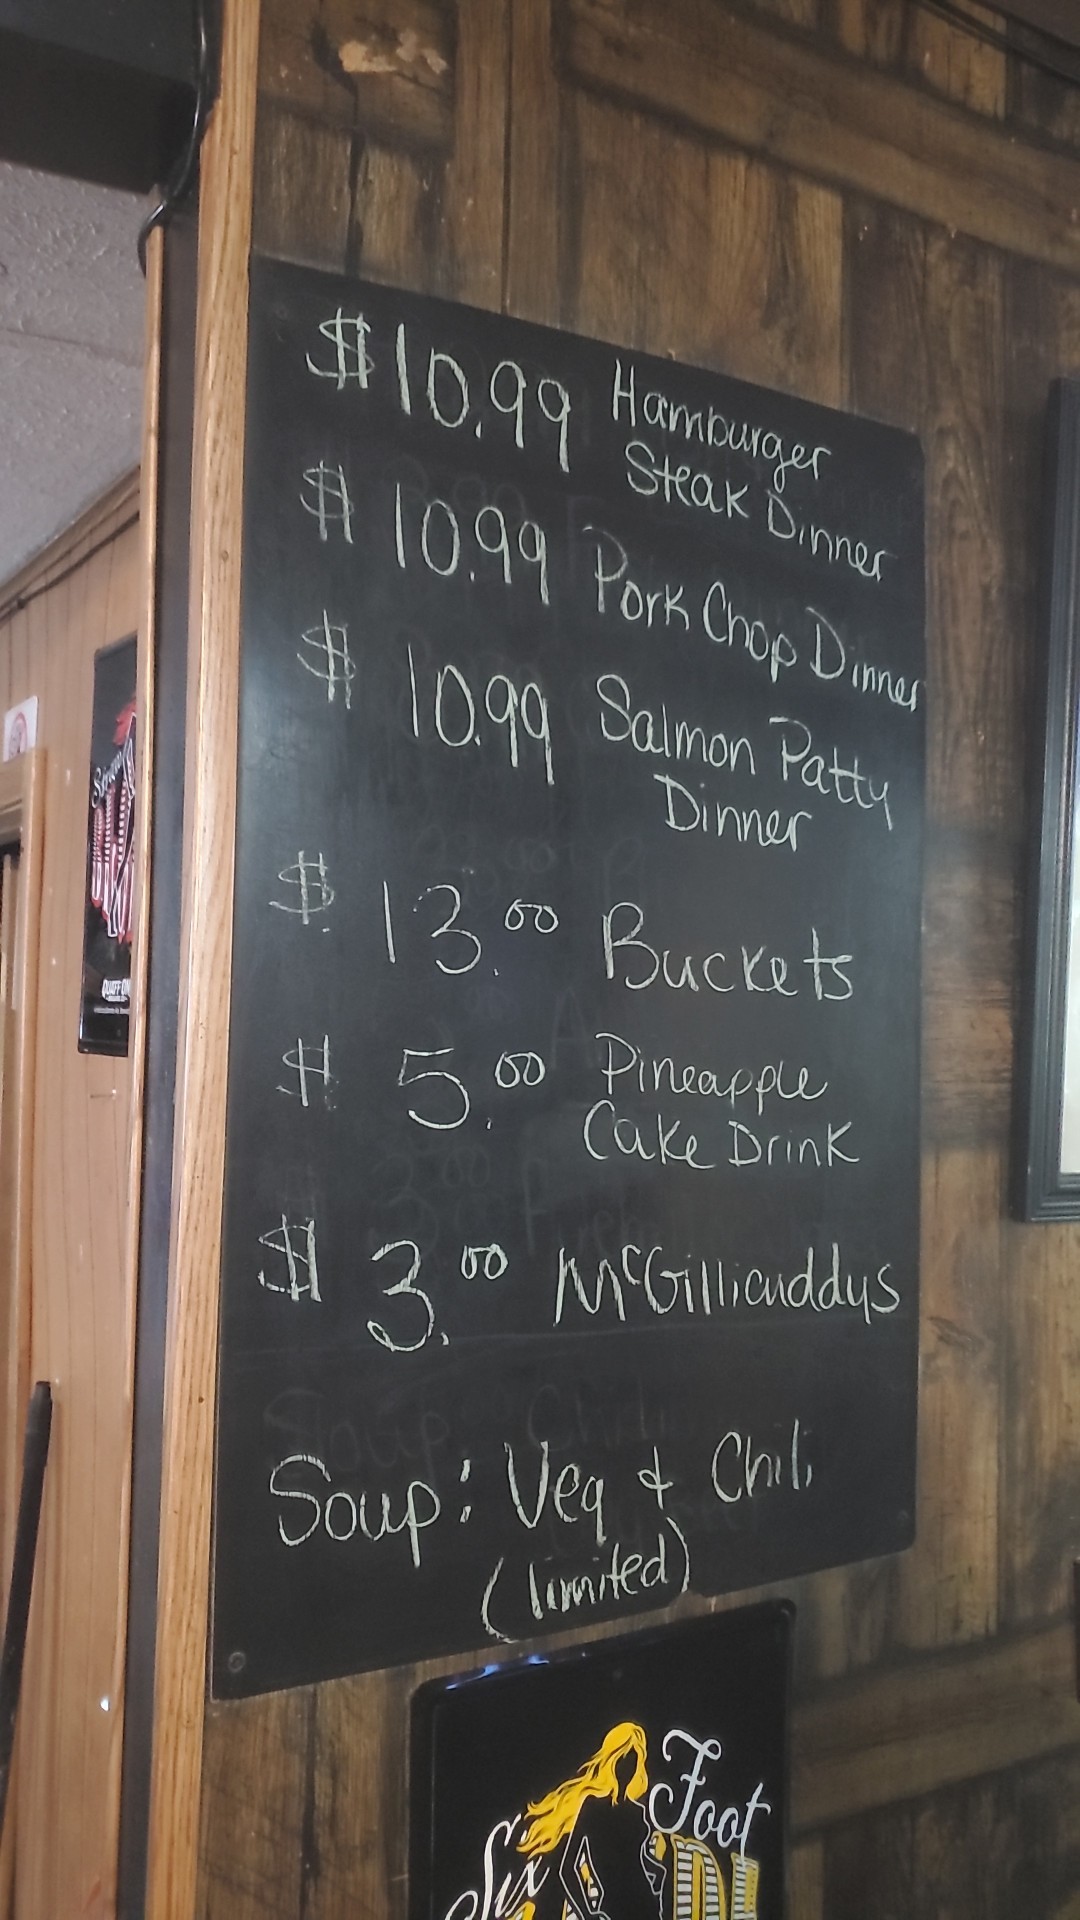 $10.99 Hamburger
Steak Dinner
$10.99 Pork Chop Dinner
$10.99 Salmon Patty
Dinner
$13.00 Buckets
$5.00 Pineapple
Cake Drink
$3.00 McGillicuddys
Soup: Veg & Chili
(limited)
Six Foot
QUAFF ON